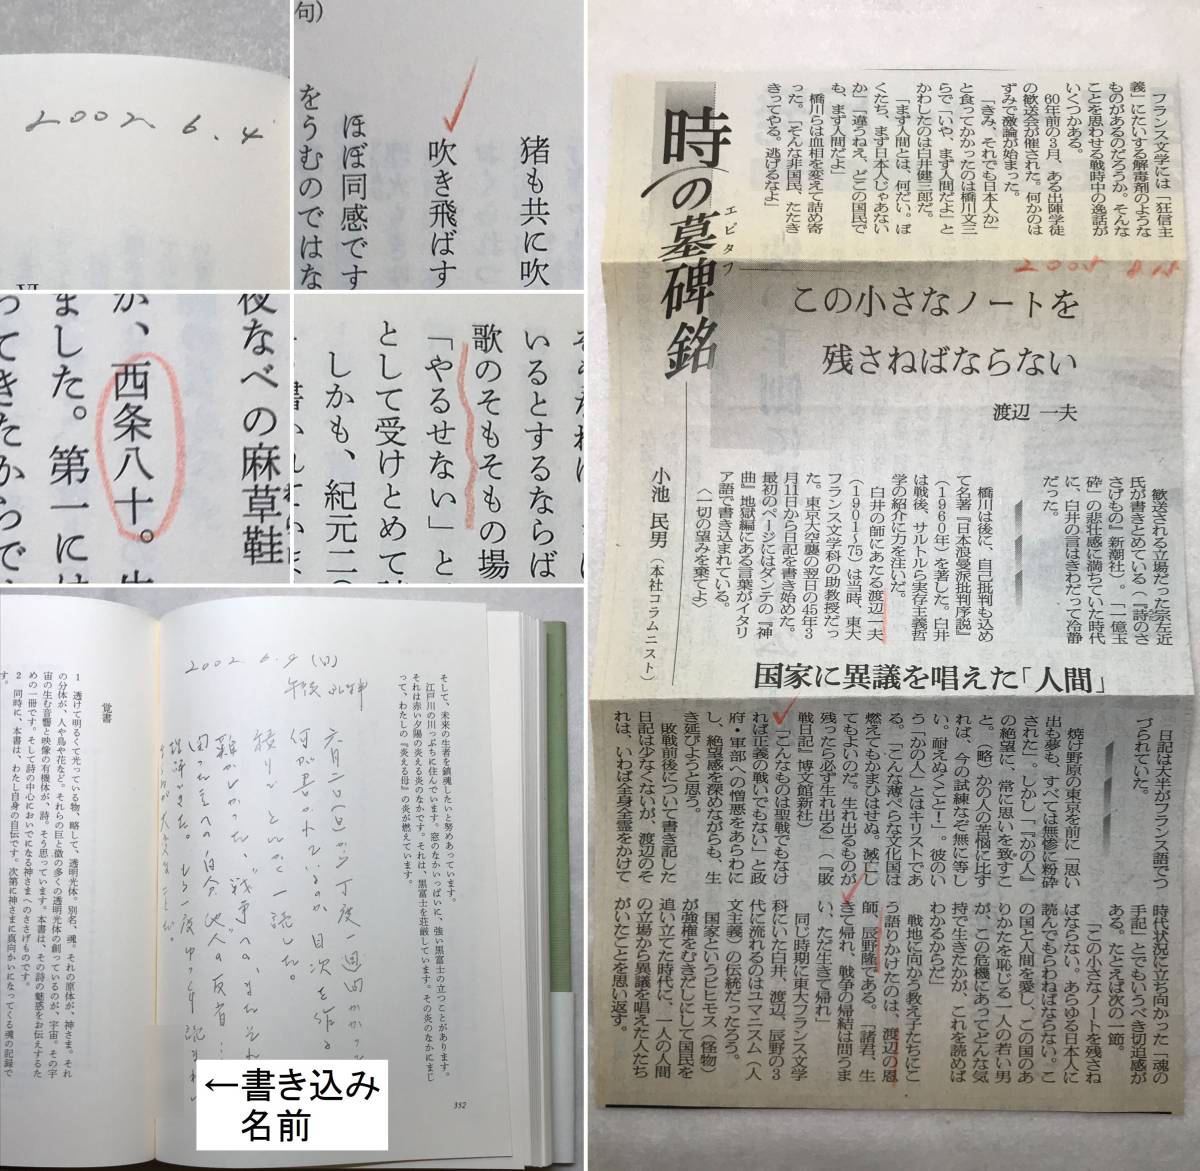 2002. 6. 4
句)
猪も共に吹
吹き飛ばす
ほぼ同感です
をうむのではな
夜なべの麻草鞋
か、西条八十。
ました。第一には
ってきたからで
いるとするならば
歌のそもそもの場
「やるせない」と
として受けとめて
しかも、紀元二〇
そして、未来の生者を鎮魂したいと努めあっています。
江戸川の川っぷちに住んでいます。窓のなかいっぱいに、強い黒富士の立つことがあります。
それは赤い夕陽の炎える炎のなかです。それは、黒富士を荘厳しています。その炎のなかにまじ
って、わたしの『炎える母』の炎が燃えています。
352
2002 6.9(日)
覚書
1 透けて明るくて光っている物、略して、透明光体。別名、魂。それの原体が、神さま。それ
の分体が、人や鳥や花など。それらの巨と微の多くの透明光体の創っているのが、宇宙。その宇
宙の生む音響と映像の有機体が、詩。そう思っています。本書は、その詩の魅惑をお伝えするた
めの一冊です。そして詩の中心においでになる神さまへのささげものです。
2 同時に、本書は、わたし自身の自伝です。次第に神さまに真向かいになってくる魂の記録で
す。
←書き込み
名前
時の墓碑銘
エピタフ
2005 8.15
この小さなノートを
残さねばならない
渡辺 一夫
小池 民男(本社コラムニスト)
フランス文学には「狂信主
義」にたいする解毒剤のような
ものがあるのだろうか。そんな
ことを思わせる戦時中の逸話が
いくつかある。
60年前の3月、ある出陣学徒
の歓送会が催された。何かのは
ずみで激論が始まった。
「きみ、それでも日本人か」
と食ってかかったのは橋川文三
らで「いや、まず人間だよ」と
かわしたのは白井健三郎だ。
「まず人間とは、何だい。ぼ
くたち、まず日本人じゃあない
か」「違うねえ、どこの国民で
も、まず人間だよ」
橋川らは血相を変えて詰め寄
った。「そんな非国民、たたき
きってやる。逃げるなよ」
歓送される立場だった宗左近
氏が書きとめている(『詩のさ
さげもの』新潮社)。「一億玉
砕」の悲壮感に満ちていた時代
に、白井の言はきわだって冷静
だった。
橋川は後に、自己批判も込め
て名著『日本浪曼派批判序説』
(1960年)を著した。白井
は戦後、サルトルら実存主義哲
学の紹介に力を注いだ。
白井の師にあたる渡辺一夫
(1901〜75)は当時、東大
フランス文学科の助教授だっ
た。東京大空襲の翌日の45年3
月11日から日記を書き始めた。
最初のページにはダンテの『神
曲』地獄編にある言葉がイタリ
ア語で書き込まれている。
〈一切の望みを棄てよ〉
国家に異議を唱えた「人間」
日記は大半がフランス語でつ
づられていた。
焼け野原の東京を前に「思い
出も夢も、すべては無惨に粉砕
された」。しかし「『かの人』
の絶望に、常に思いを致すこ
と。(略)かの人の苦悩に比す
れば、今の試練なぞ無に等し
い。耐えぬくこと!」。彼のい
う「かの人」とはキリストであ
る。「こんな薄ぺらな文化国は
燃えてもかまひはせぬ。滅亡し
てもよいのだ。生れ出るものが
残ったら必ず生れ出る」(『敗
戦日記』博文館新社)
「こんなものは聖戦でもなけ
れば正義の戦いでもない」と政
府・軍部への憎悪をあらわに
し、絶望感を深めながらも、生
き延びようと思う。
敗戦前後について書き記した
日記は少なくないが、渡辺のそ
れは、いわば全身全霊をかけて
時代状況に立ち向かった「魂の
手記」とでもいうべき切迫感が
ある。たとえば次の一節。
「この小さなノートを残さね
ばならない。あらゆる日本人に
読んでもらわねばならない。こ
の国と人間を愛し、この国のあ
りかたを恥じる一人の若い男
が、この危機にあってどんな気
持で生きたかが、これを読めば
わかるからだ」
戦地に向かう教え子たちにこ
う語りかけたのは、渡辺の恩
師、辰野隆である。「諸君、生
きて帰れ、戦争の帰結は問うま
い、ただ生きて帰れ」
同じ時期に東大フランス文学
科にいた白井、渡辺、辰野の3
代に流れるのはユマニスム(人
文主義)の伝統だったろう。
国家というビヒモス(怪物)
が強権をむきだしにして国民を
追い立てた時代に、一人の人間
の立場から異議を唱えた人たち
がいたことを思い返す。